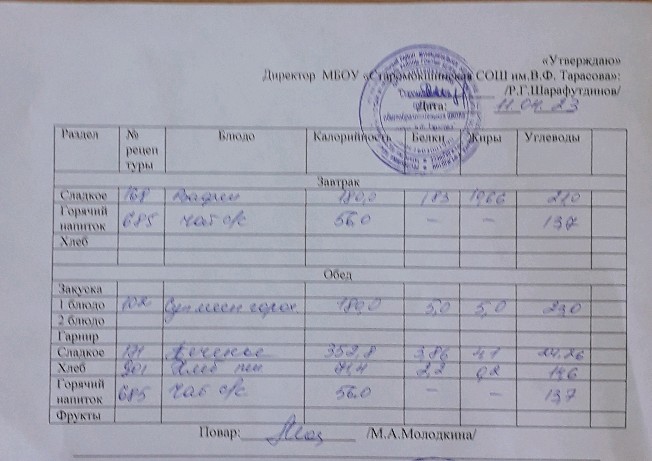 «Утверждаю»
Директор МБОУ «Старомокшинская СОШ им.В.Ф. Тарасова»:
/Р.Г.Шарафутдинов/
Дата: 11.04.23
Раздел № рецептуры Блюдо Калорийность Белки Жиры Углеводы
Завтрак
Сладкое 168 Вафли 180,0 1,83 19,66 21,0
Горячий напиток 685 Чай с/с 56.0 – – 13,7
Хлеб
Обед
Закуска
1 блюдо 102 Суп горох 180,0 5,0 5,0 23,0
2 блюдо
Гарнир
Сладкое Печенье 352,8 3,86 4,1 24.26
Хлеб 901 Хлеб пш 71,4 2,2 0,2 14,6
Горячий напиток 685 Чай с/с 56.0 – – 13,7
Фрукты
Повар: /М.А.Молодкина/